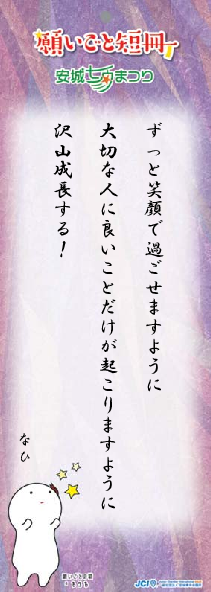 願いごと短冊
安城七夕まつり
ずっと笑顔で過ごせますように
大切な人に良いことだけが起こりますように
沢山成長する！
なひ
JCI